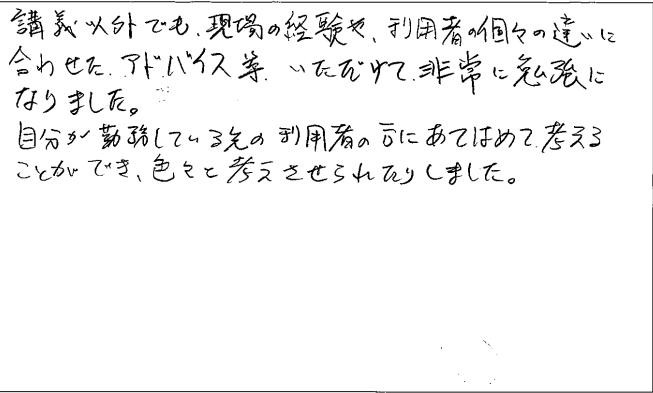 講義以外でも、現場の経験や、利用者の個々の違いに
合わせた、アドバイス等、いただけて、非常に勉強に
なりました。
自分が勤務している先の利用者の方にあてはめて、考える
ことができ、色々と考えさせられたりしました。